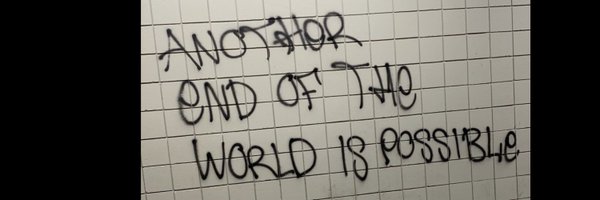 ANOTHER
eND OF THe
WORLD IS POSSIBLe